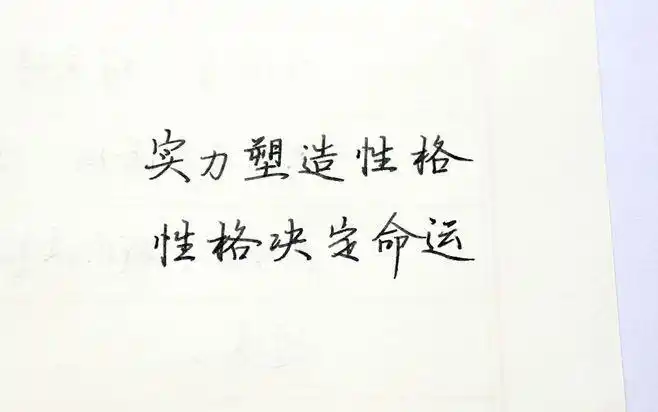 实力塑造性格
性格决定命运